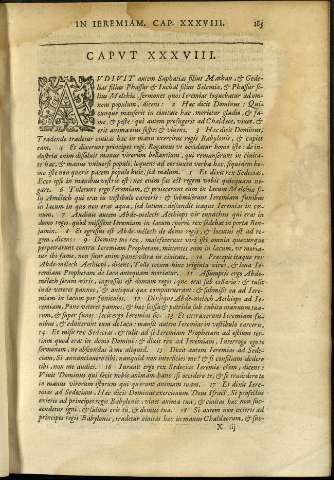 IN IEREMIAM. CAP. XXXVIII.
CAPVT XXXVIII.
AVDIVIT autem Saphatias filius Mathan, & Gede-
lias filius Phassur & Iuchal filius Selemiæ, & Phassur fi-
lius Melchiæ, sermones quos Ieremias loquebatur ad om-
nem populum, dicens: 2 Hæc dicit Dominus: Qui-
cunque manserit in ciuitate hac, morietur gladio, & fa-
me, & peste: qui autem profugerit ad Chaldæos, viuet, &
erit anima eius sospes & viuens. 3 Hæc dicit Dominus,
Tradendo tradetur ciuitas hæc in manu exercitus regis Babylonis, & capiet
eam. 4 Et dixerunt principes regi, Rogamus vt occidatur homo iste: de in-
dustria enim dissoluit manus virorum bellantium, qui remanserunt in ciuita-
te hac, & manus vniuersi populi, loquens ad eos iuxta verba hæc, siquidem ho-
mo iste non quærit pacem populo huic, sed malum. 5 Et dixit rex Sedecias,
Ecce ipse in manibus vestris est: nec enim fas est regem vobis quicquam ne-
gare. 6 Tulerunt ergo Ieremiam, & proiecerunt eum in lacum Melchiæ fi-
lij Amelech qui erat in vestibulo carceris: & submiserunt Ieremiam funibus
in lacum in quo non erat aqua, sed lutum: descendit itaque Ieremias in cœ-
num. 7 Audiuit autem Abde-melech Aethiops vir eunuchus qui erat in
domo regis, quòd misissent Ieremiam in lacum: porrò rex sedebat in porta Ben-
jamin. 8 Et egressus est Abde-melech de domo regis, & locutus est ad re-
gem, dicens: 9 Domine mi rex, malefecerunt viri isti omnia quæcunque
perpetrarunt contra Ieremiam Prophetam, mittentes eum in lacum, vt moria-
tur ibi fame, non sunt enim panes vltra in ciuitate. 10 Præcepit itaque rex
Abde-melech Aethiopi, dicens, Tolle tecum hinc triginta viros, & leua Ie-
remiam Prophetam de lacu antequam moriatur. 11 Assumptis ergo Abde-
melech secum viris, ingressus est domum regis, quæ erat sub cellario: & tulit
inde veteres pannos, & antiqua quæ computruerant & submisit ea ad Iere-
miam in lacum per funiculos. 12 Dixitque Abde-melech Aethiops ad Ie-
remiam, Pone veteres pannos, & hæc scissa & putrida sub cubito manuum tua-
rum, & super funes: fecit ergo Ieremias sic. 13 Et extraxerunt Ieremiam fu-
nibus, & eduxerunt eum de lacu: mansit autem Ieremias in vestibulo carceris.
14 Et misit rex Sedecias, & tulit ad se Ieremiam Prophetam ad ostium ter-
tium quod erat in domo Domini: & dixit rex ad Ieremiam, Interrogo ego te
sermonem, ne abscondas à me aliquid. 15 Dixit autem Ieremias ad Sede-
ciam, Si annuntiauero tibi, nunquid non interficies me? & si consilium dedero
tibi, non me audies. 16 Iurauit ergo rex Sedecias Ieremiæ clam, dicens:
Viuit Dominus qui fecit nobis animam hanc, si occidero te, & si tradidero te
in manus virorum istorum qui quærunt animam tuam. 17 Et dixit Iere-
mias ad Sedeciam, Hæc dicit Dominus exercituum Deus Israel: Si profectus
exieris ad principes regis Babylonis, viuet anima tua, & ciuitas hæc non suc-
cendetur igni, & saluus eris tu, & domus tua. 18 Si autem non exieris ad
principes regis Babylonis, tradetur ciuitas hæc in manus Chaldæorum, & suc-
X iij